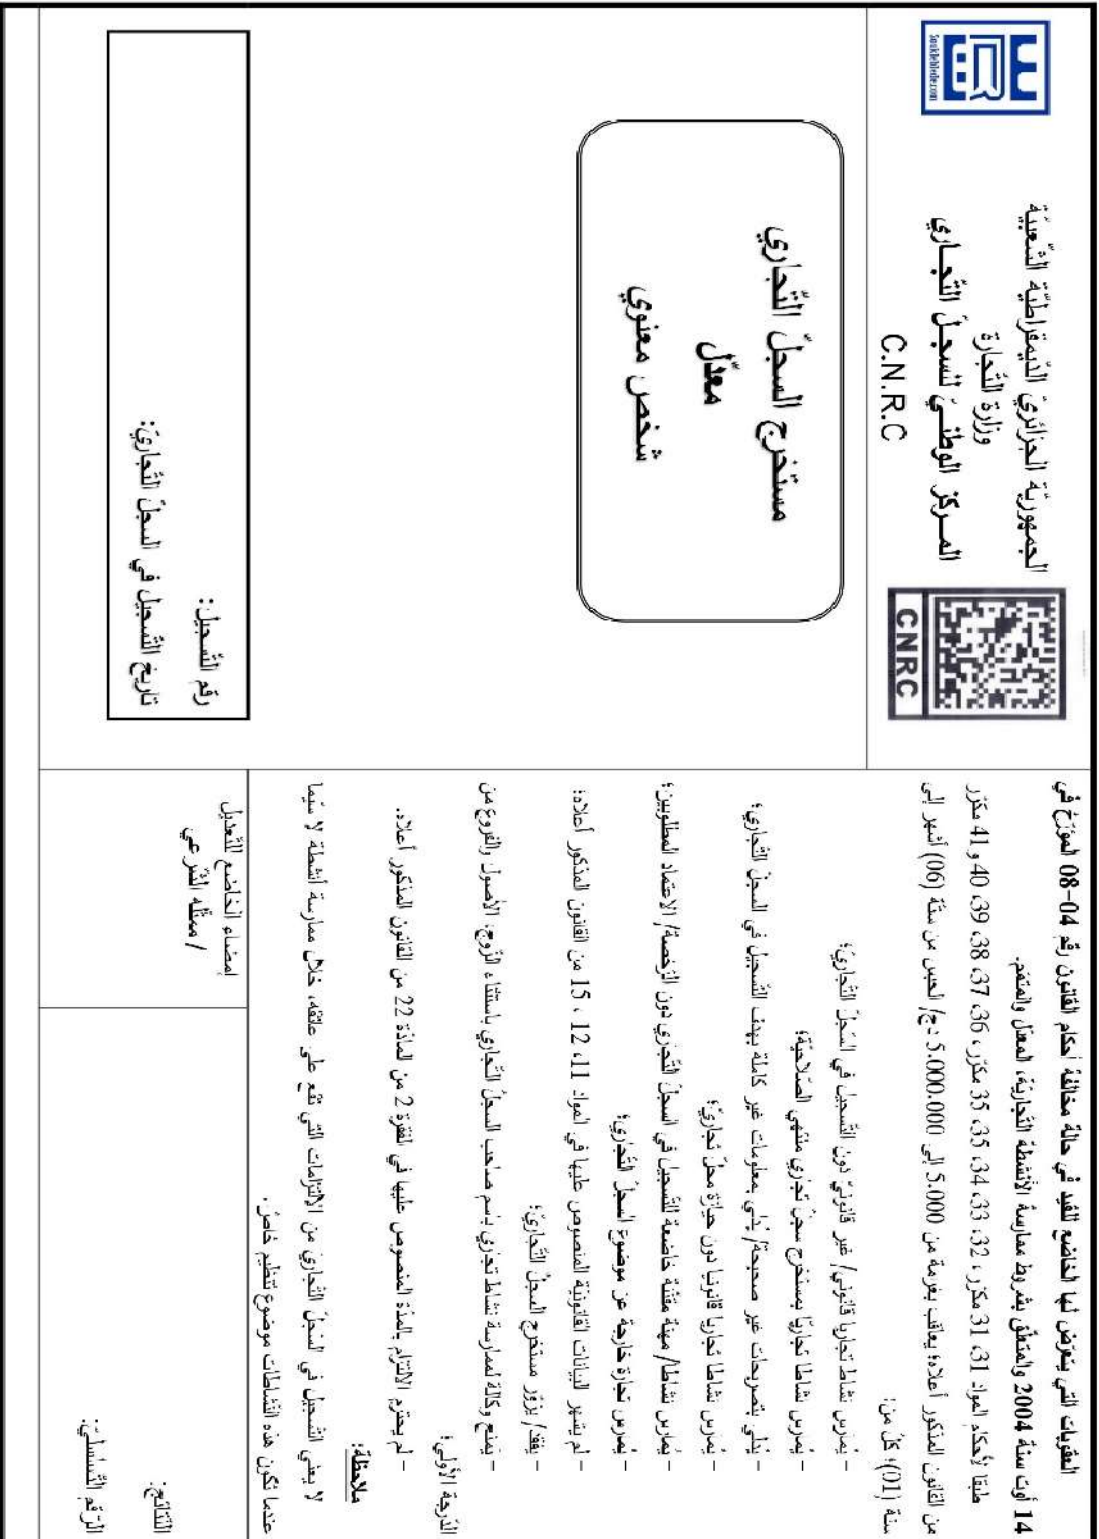 الجمهورية الجزائرية الديمقراطية الشعبية
وزارة التجارة
المـركز الوطنـي للسجـل التّجـاري
C.N.R.C
Soukleblede.com
CNRC
مستخرج السجلّ التّجاري
معدّل
شخص معنوي
رقم التّسجيل:
تاريخ التّسجيل في السجلّ التّجاريّ:
العقوبات التي يتعرّض لها الخاضع للقيد في حالة مخالفة أحكام القانون رقم 04-08 المؤرّخ في
14 أوت سنة 2004 والمتعلّق بشروط ممارسة الأنشطة التّجاريّة، المعدّل والمتمّم.
طبقا لأحكام المواد 31، 31 مكرّر، 32، 33، 34، 35، 35 مكرّر، 36، 37، 38، 39، 40 و 41 مكرّر
من القانون المذكور أعلاه؛ يعاقب بغرمة من 5.000 إلى 5.000.000 دج/ الحبس من ستّة (06) أشهر إلى
سنة (01)؛ كلّ من:
– يُمارس نشاط تجاريا قانوني/ غير قانونيّ دون التّسجيل في السّجلّ التّجاريّ؛
– يُمرس نشاطا تجاريّا بمستخرج سجلّ تجاري منتهي الصّلاحيّة؛
– يُدلي بتصريحات غير صحيحة/ يُدلي بمعلومات غير كاملة بهدف التّسجيل في السجلّ التّجاري؛
– يُمارس نشاطا تجاريا قانونيا دون حيازة محلّ تجاريّ؛
– يُمارس نشاطا/ مهنة مقنّنة خاضعة للتّسجيل في السجلّ التّجاري دون الرّخصة/ الاعتماد المطلوبين؛
– يُمرس تجارة خارجة عن موضوع السجلّ التّجاري؛
– لم يشهر البيانات القانونيّة المنصوص عليها في المواد 11، 12 ، 15 من القانون المذكور أعلاه؛
– يقلّد/ يزوّر مستخرج السجلّ التّجاريّ؛
– يمنح وكالة لممارسة نشاط تجاري باسم صاحب السجلّ التّجاري باستثناء الزّوج، الأصول والفروع من
الدّرجة الأولى؛
– لم يحترم الالتزام بالمدّة المنصوص عليها في الفقرة 2 من المادّة 22 من القانون المذكور أعلاه.
ملاحظة:
لا يعني التّسجيل في السّجلّ التّجاري من الالتزامات التي تقع على عاتقه، خلال ممارسة أنشطة لا سّيما
عندما تكون هذه النّشاطات موضوع تنظيم خاصّ.
إمضاء الخاضع للتّعديل
/ ممثّله الشّرعي
النّتائج:
الرّقم التّسلسليّ: